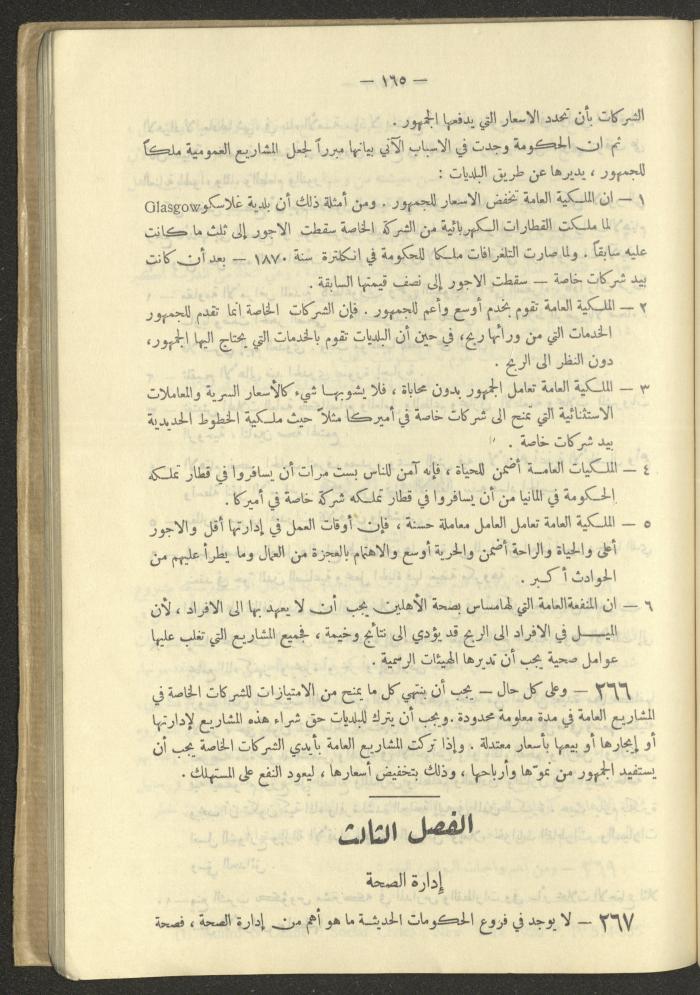 — ١٦٥ —
الشركات بأن تحدد الاسعار التي يدفعها الجمهور .
ثم ان الحكومة وجدت في الاسباب الآتي بيانها مبرراً لجعل المشاريع العمومية ملكاً
للجمهور ، يديرها عن طريق البلديات :
١ — ان الملكية العامة تخفض الاسعار للجمهور . ومن أمثلة ذلك أن بلدية غلاسكو Glasgow
لما ملكت القطارات الكهربائية من الشركة الخاصة سقطت الاجور إلى ثلث ما كانت
عليه سابقاً . ولما صارت التلغرافات ملكا للحكومة في انكلترة سنة ١٨٧٠ — بعد أن كانت
بيد شركات خاصة — سقطت الاجور إلى نصف قيمتها السابقة .
٢ — الملكية العامة تقوم بخدم أوسع وأعم للجمهور . فإن الشركات الخاصة انما تقدم للجمهور
الخدمات التي من ورائها ربح، في حين أن البلديات تقوم بالخدمات التي يحتاج اليها الجمهور،
دون النظر الى الربح .
٣ — الملكية العامة تعامل الجمهور بدون محاباة ، فلا يشوبها شيء كالأسعار السرية والمعاملات
الاستثنائية التي تمنح الى شركات خاصة في أميركا مثلاً حيث ملكية الخطوط الحديدية
بيد شركات خاصة .
٤ — الملكيات العامة أضمن للحياة ، فإنه آمن للناس بست مرات أن يسافروا في قطار تملكه
الحكومة في المانيا من أن يسافروا في قطار تملكه شركة خاصة في أميركا .
٥ — الملكية العامة تعامل العامل معاملة حسنة ، فإن أوقات العمل في إدارتها أقل والاجور
أعلى والحياة والراحة أضمن والحرية أوسع والاهتمام بالعجزة من العمال وما يطرأ عليهم من
الحوادث أكبر .
٦ — ان المنفعة العامة التي لها مساس بصحة الأهلين يجب أن لا يعهد بها الى الافراد ، لأن
الميل في الافراد الى الربح قد يؤدي الى نتائج وخيمة ، فجميع المشاريع التي تغلب عليها
عوامل صحية يجب أن تديرها الهيئات الرسمية .
٢٦٦ — وعلى كل حال — يجب أن ينتهي كل ما يمنح من الامتيازات للشركات الخاصة في
المشاريع العامة في مدة معلومة محدودة . ويجب أن يترك للبلديات حق شراء هذه المشاريع لإدارتها
أو إيجارها أو بيعها بأسعار معتدلة . وإذا تركت المشاريع العامة بأيدي الشركات الخاصة يجب أن
يستفيد الجمهور من نموّها وأرباحها ، وذلك بتخفيض أسعارها ، ليعود النفع على المستهلك .
الفصل الثالث
إدارة الصحة
٢٦٧ — لا يوجد في فروع الحكومات الحديثة ما هو أهم من إدارة الصحة ، فصحة